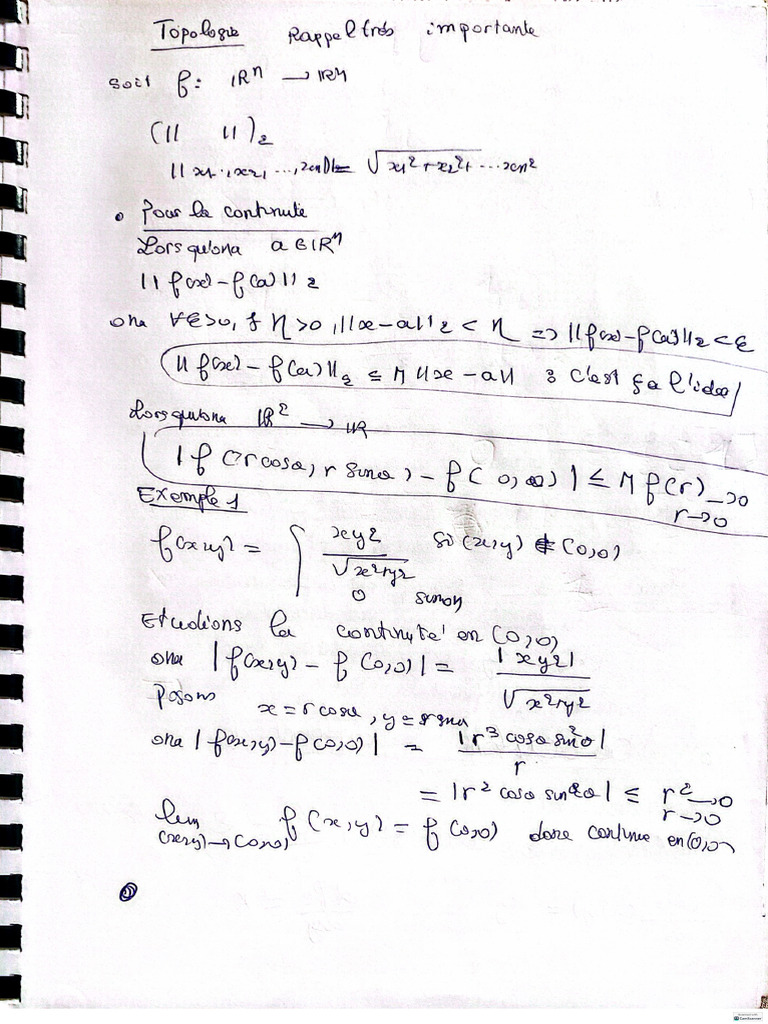 Topologie Rappel très importante
soit f: IRⁿ → IRⁿ
(|| ||)₂
||x1, x2, ..., xn)||= √x1²+x2²+...xn²
• Pour la continuité
Lorsqu'on a a∈IRⁿ
||f(x)-f(a)||₂
ona ∀ε>0, ∃ η>0, ||x-a||₂ < η => ||f(x)-f(a)||₂<ε
||f(x)-f(a)||₂ ≤ M ||x-a|| : c'est ça l'idée
Lorsqu'ona IR² → IR
|f(rcosθ, r sinθ) - f(0,0)| ≤ M f(r) →0
r→0
Exemple 1
f(x,y) = { xy²/√x²+y² si (x,y) ≠ (0,0)
0 sinon
Etudions la continuité en (0,0)
ona |f(x,y) - f(0,0)| = |xy²|/√x²+y²
Posons x=rcosθ, y=rsinθ
ona |f(x,y)-f(0,0)| = |r³cosθ sin²θ|/r
= |r² cosθ sin²θ| ≤ r² →0
r→0
lim f(x,y) = f(0,0) donc continue en (0,0)
(x,y)→(0,0)